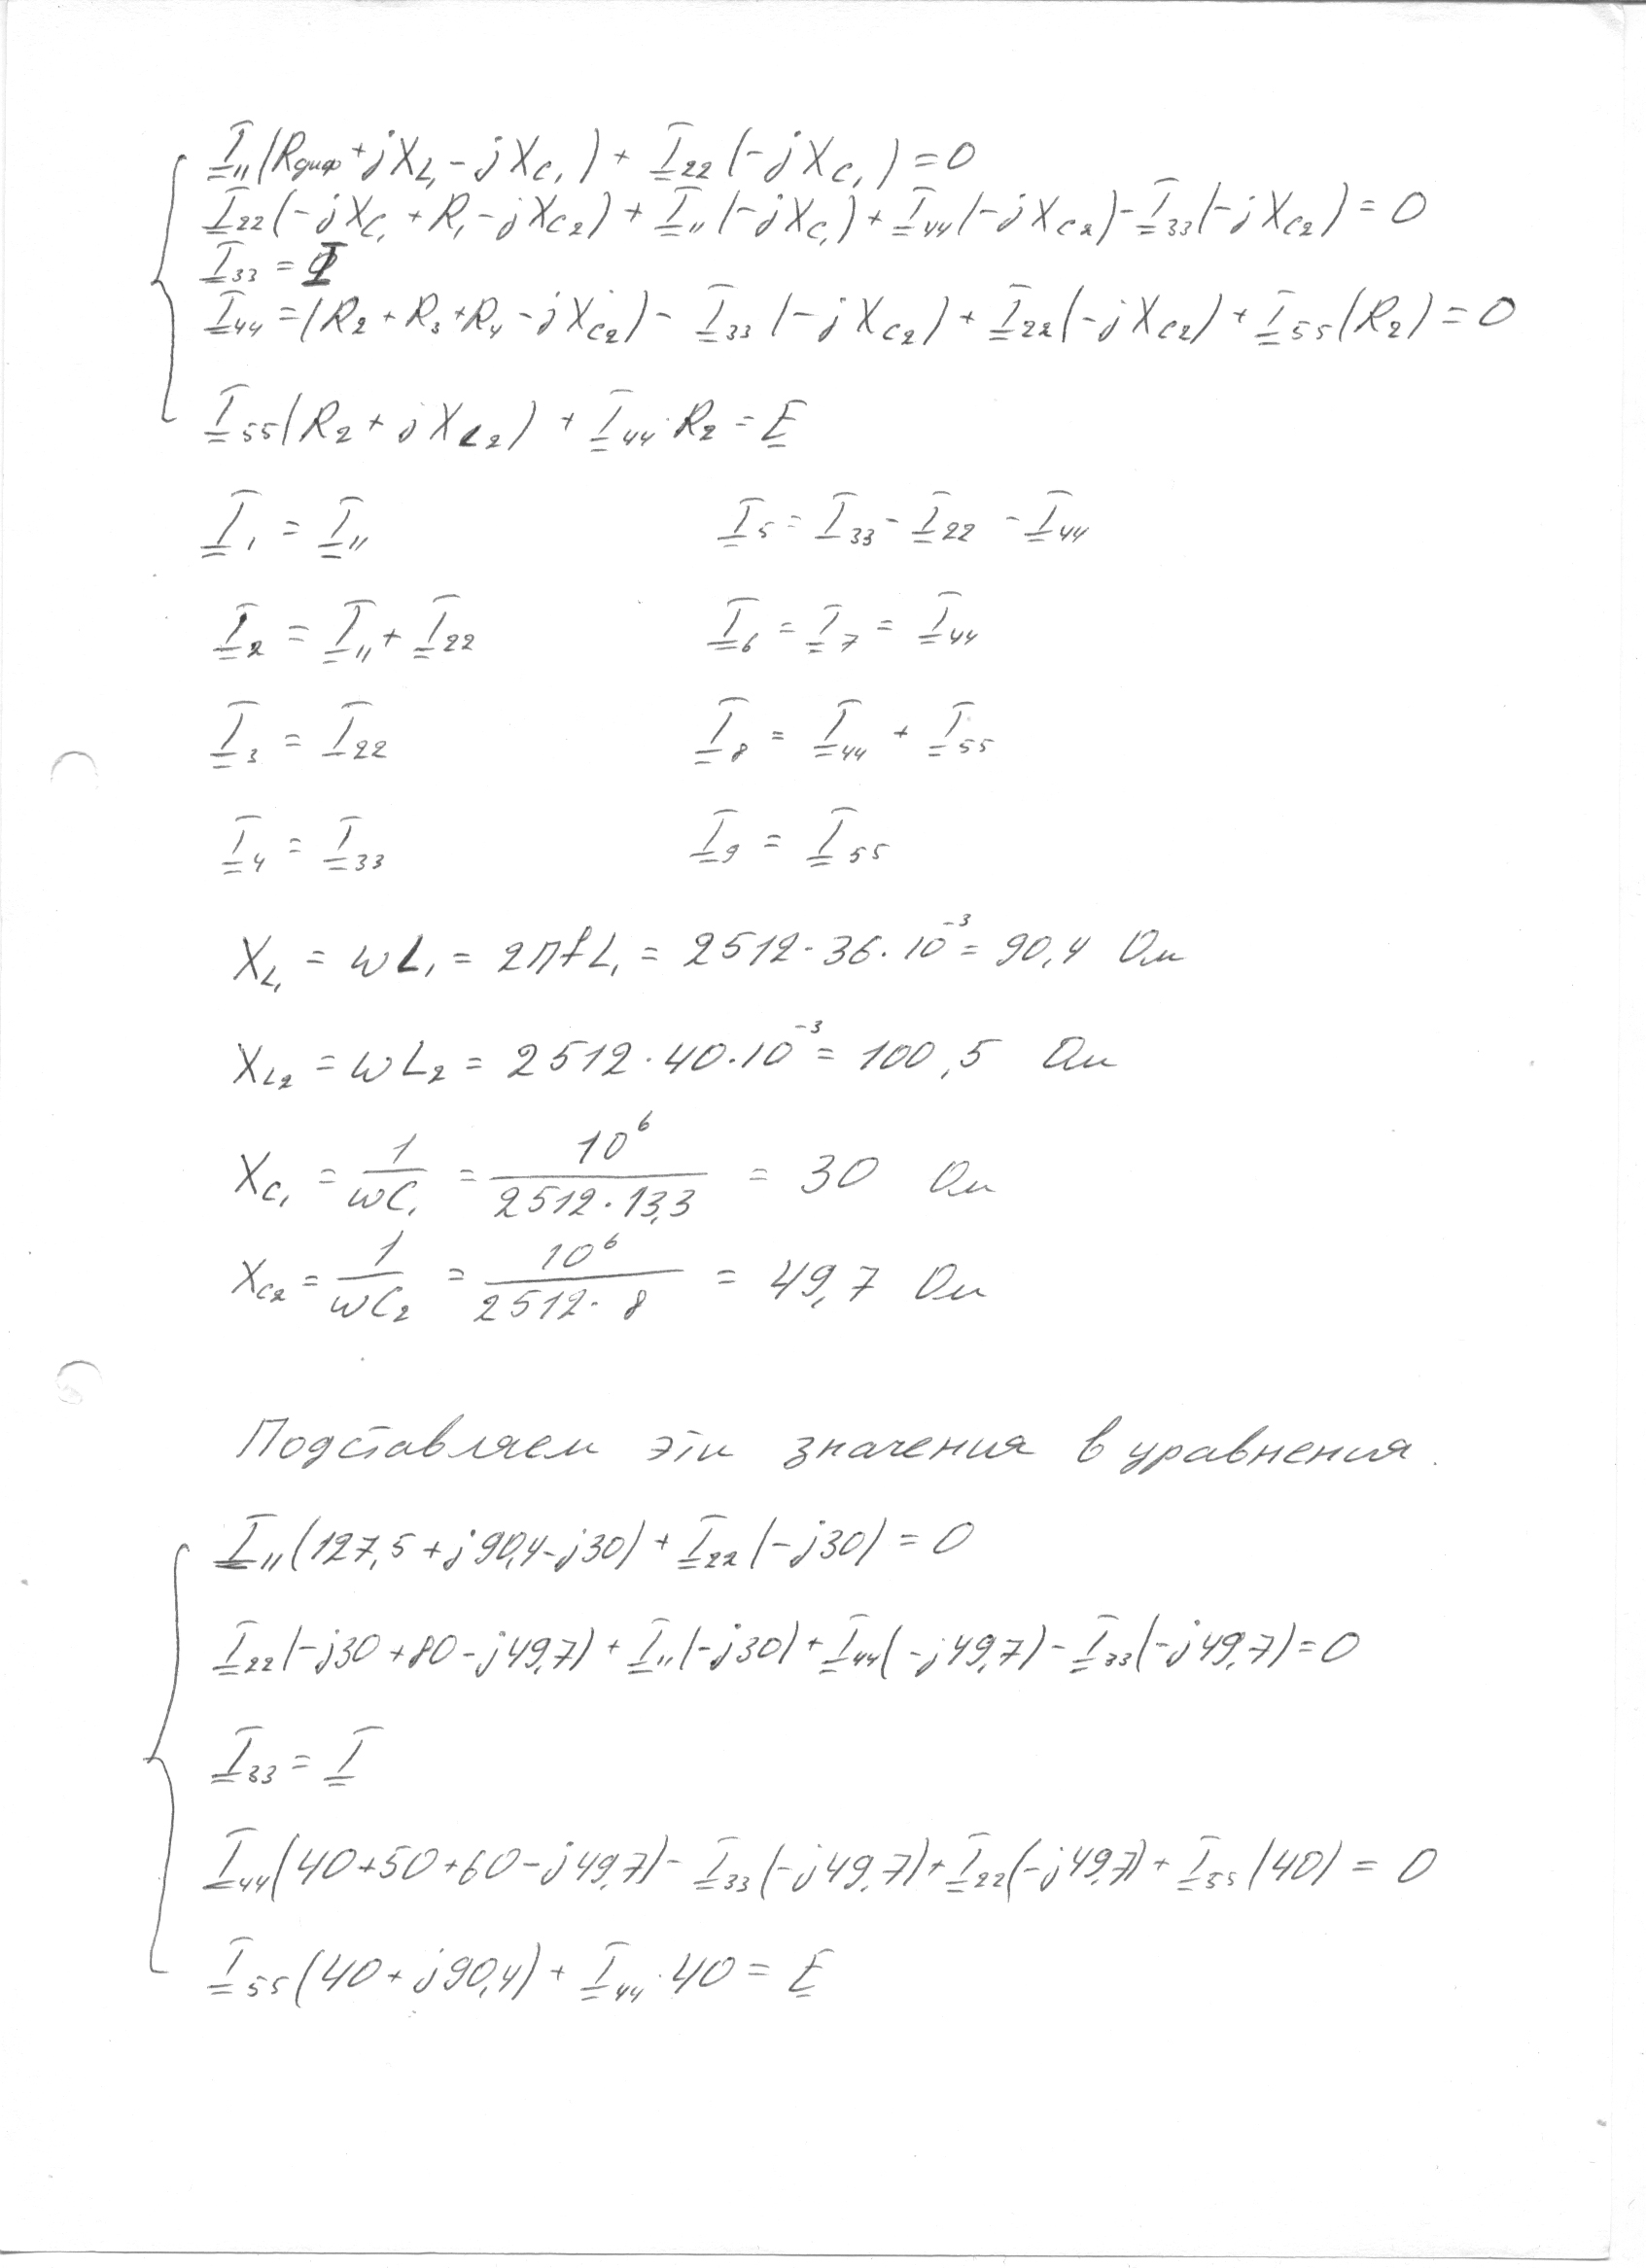 I̲₁₁(Rдиф + jX_L₁ - jX_C₁) + I̲₂₂(-jX_C₁) = 0
I̲₂₂(-jX_C₁ + R₁ - jX_C₂) + I̲₁₁(-jX_C₁) + I̲₄₄(-jX_C₂) - I̲₃₃(-jX_C₂) = 0
I̲₃₃ = I
I̲₄₄ = (R₂ + R₃ + R₄ - jX_C₂) - I̲₃₃(-jX_C₂) + I̲₂₂(-jX_C₂) + I̲₅₅(R₂) = 0
I̲₅₅(R₂ + jX_L₂) + I̲₄₄·R₂ = E̲
I̲₁ = I̲₁₁ I̲₅ = I̲₃₃ - I̲₂₂ - I̲₄₄
I̲₂ = I̲₁₁ + I̲₂₂ I̲₆ = I̲₇ = I̲₄₄
I̲₃ = I̲₂₂ I̲₈ = I̲₄₄ + I̲₅₅
I̲₄ = I̲₃₃ I̲₉ = I̲₅₅
X_L₁ = ωL₁ = 2πfL₁ = 2512·36·10⁻³ = 90,4 Ом
X_L₂ = ωL₂ = 2512·40·10⁻³ = 100,5 Ом
X_C₁ = 1/ωC₁ = 10⁶/2512·13,3 = 30 Ом
X_C₂ = 1/ωC₂ = 10⁶/2512·8 = 49,7 Ом
Подставляем эти значения в уравнения.
I̲₁₁(127,5 + j90,4 - j30) + I̲₂₂(-j30) = 0
I̲₂₂(-j30 + 80 - j49,7) + I̲₁₁(-j30) + I̲₄₄(-j49,7) - I̲₃₃(-j49,7) = 0
I̲₃₃ = I̲
I̲₄₄(40 + 50 + 60 - j49,7) - I̲₃₃(-j49,7) + I̲₂₂(-j49,7) + I̲₅₅(40) = 0
I̲₅₅(40 + j90,4) + I̲₄₄·40 = E̲